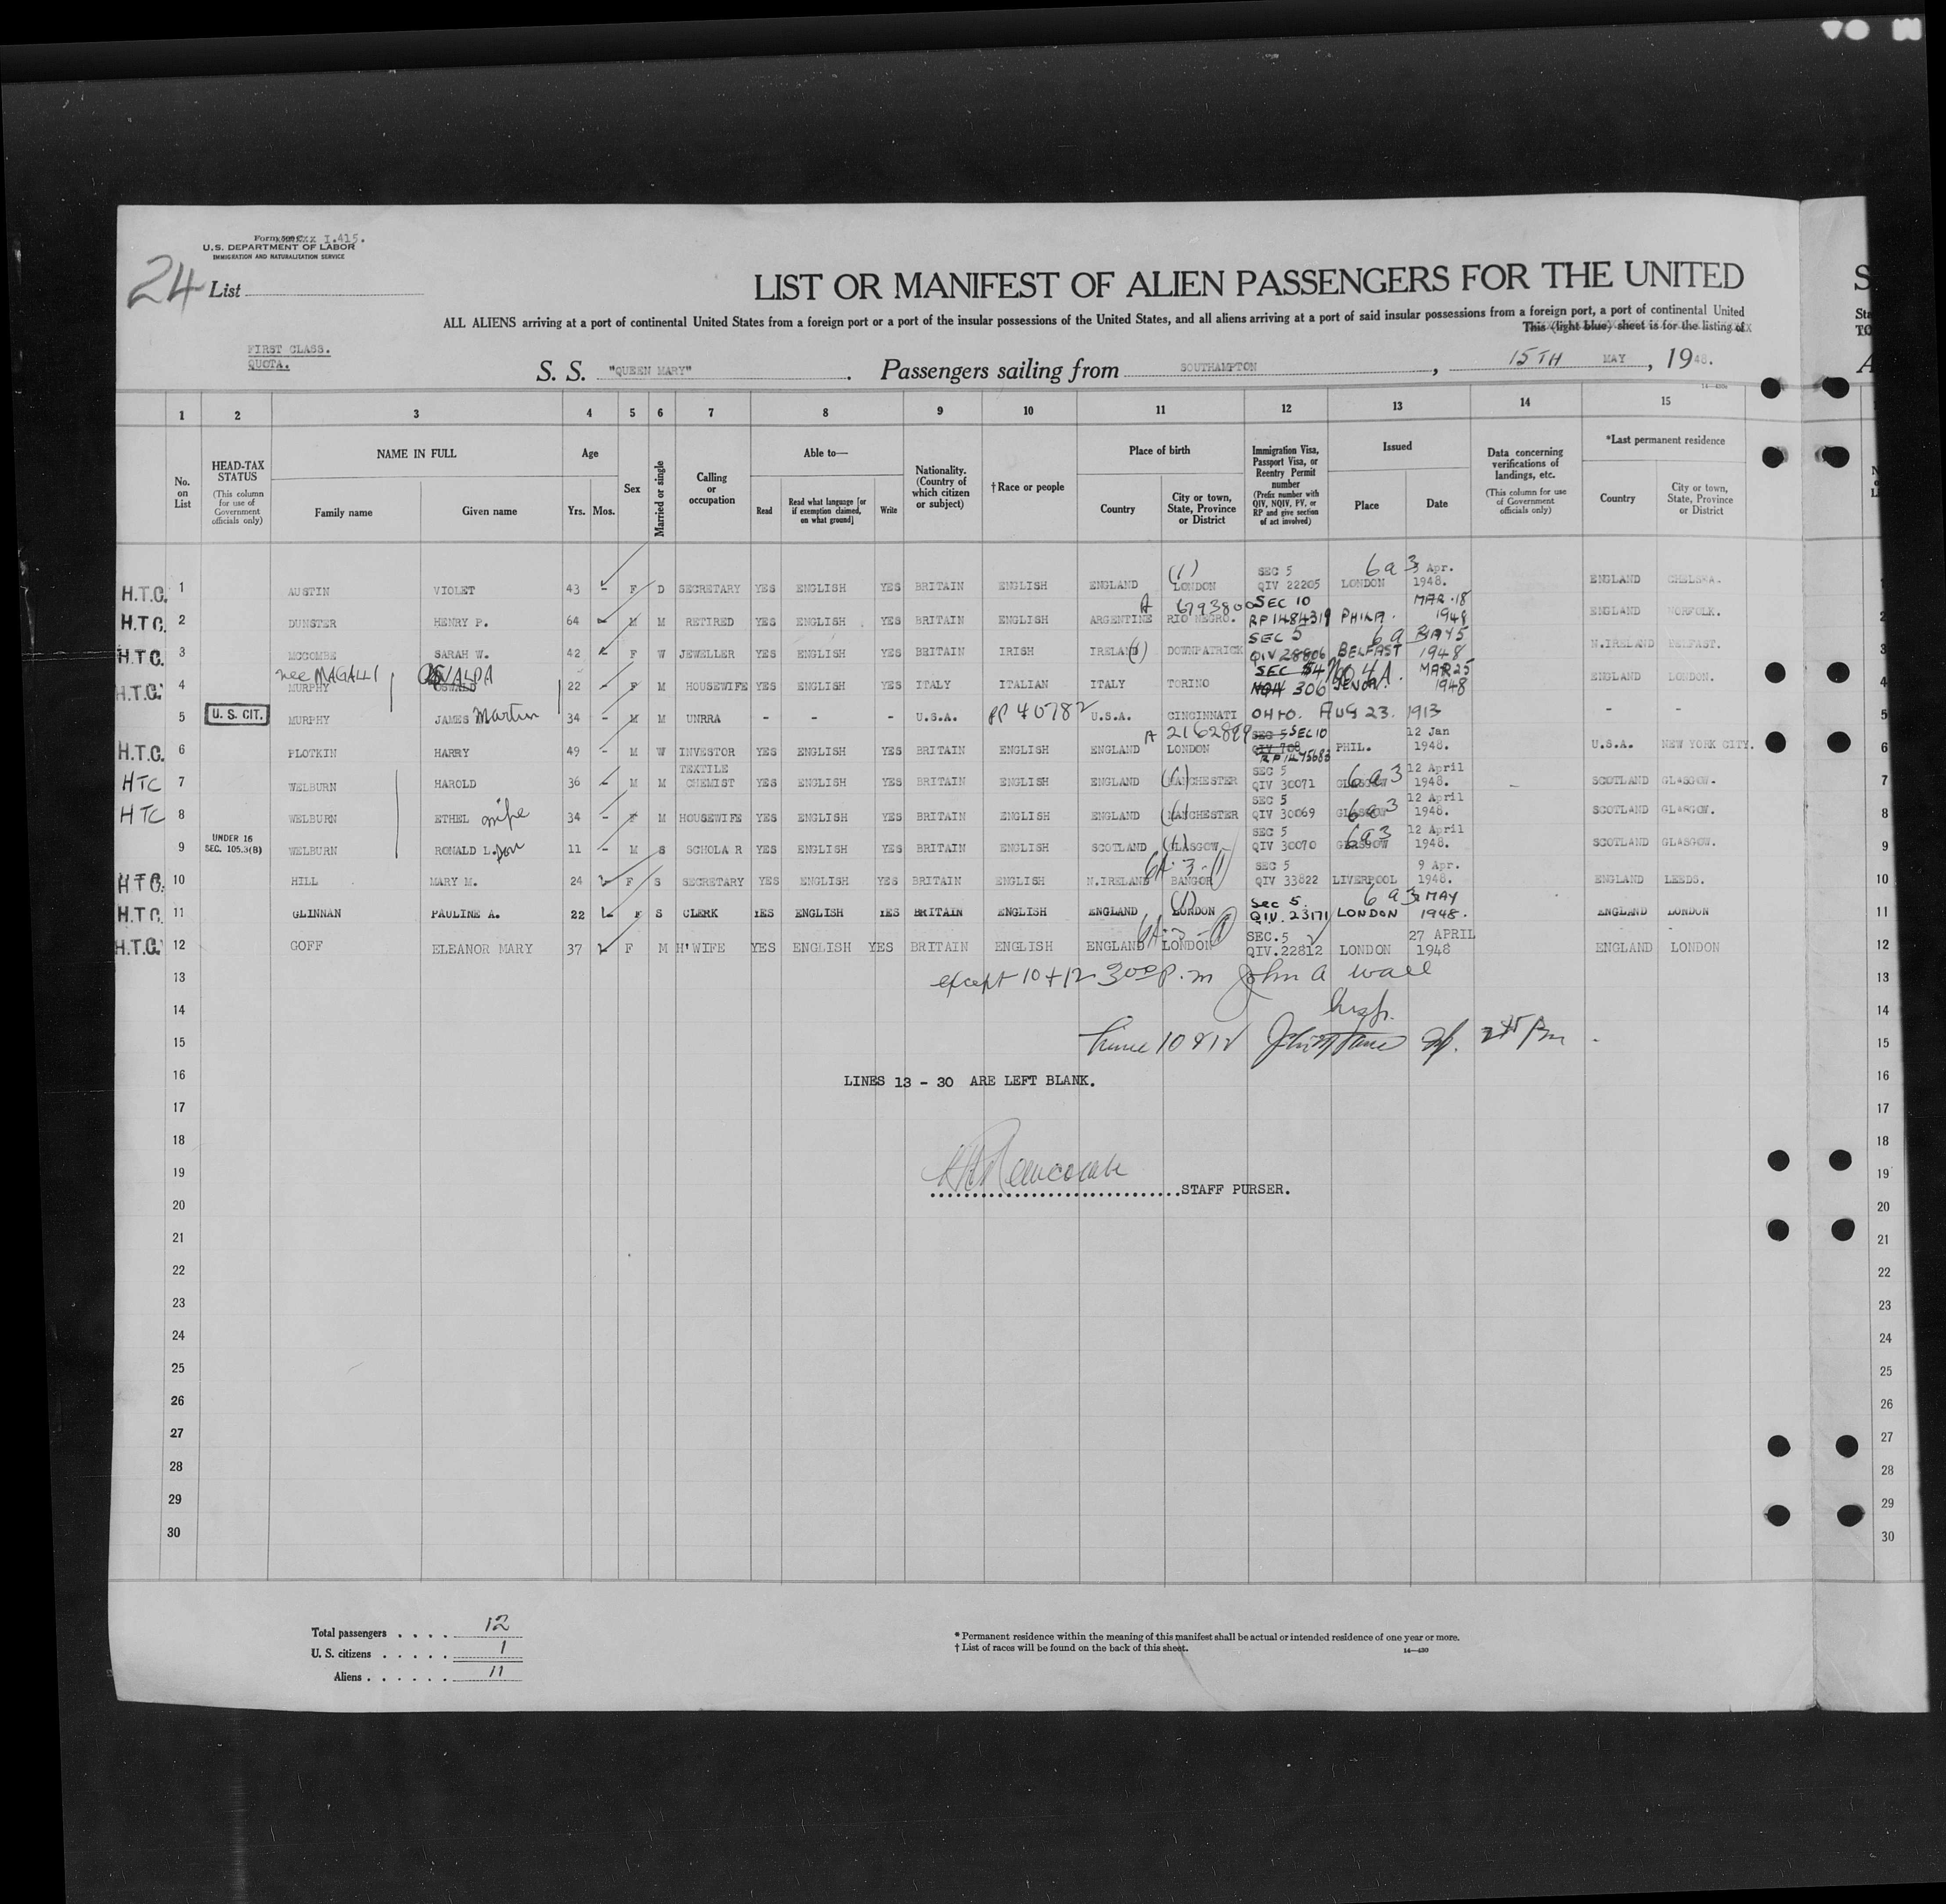 Form I.415.
U.S. DEPARTMENT OF LABOR
IMMIGRATION AND NATURALIZATION SERVICE
24 List
LIST OR MANIFEST OF ALIEN PASSENGERS FOR THE UNITED
ALL ALIENS arriving at a port of continental United States from a foreign port or a port of the insular possessions of the United States, and all aliens arriving at a port of said insular possessions from a foreign port, a port of continental United
This (light blue) sheet is for the listing of
FIRST CLASS.
QUOTA.
S. S. "QUEEN MARY". Passengers sailing from SOUTHAMPTON, 15TH MAY, 1948.
1 2 3 4 5 6 7 8 9 10 11 12 13 14 15
No. on List
HEAD-TAX STATUS (This column for use of Government officials only)
NAME IN FULL Family name Given name
Age Yrs. Mos.
Sex
Married or single
Calling or occupation
Able to— Read Read what language [or if exemption claimed, on what ground] Write
Nationality. (Country of which citizen or subject)
†Race or people
Place of birth Country City or town, State, Province or District
Immigration Visa, Passport Visa, or Reentry Permit number (Prefix number with QIV, NQIV, PV, or RP and give section of act involved)
Issued Place Date
Data concerning verifications of landings, etc. (This column for use of Government officials only)
*Last permanent residence Country City or town, State, Province or District
H.T.C. 1 AUSTIN VIOLET 43 - F D SECRETARY YES ENGLISH YES BRITAIN ENGLISH ENGLAND (1) LONDON SEC 5 QIV 22205 LONDON 6a3 3 Apr. 1948. ENGLAND CHELSEA.
H.T.C. 2 DUNSTER HENRY P. 64 - M M RETIRED YES ENGLISH YES BRITAIN ENGLISH ARGENTINE RIO NEGRO. A 6793800 SEC 10 RP 1484319 PHILA. MAR. 18 1948 ENGLAND NORFOLK.
H.T.C. 3 MCCOMBE SARAH W. 42 F W JEWELLER YES ENGLISH YES BRITAIN IRISH IRELAND (1) DOWNPATRICK SEC 5 QIV 28806 BELFAST 6a 1948 N.IRELAND BELFAST.
H.T.C. 4 nee MAGALLI MURPHY OSVALDA 22 - F M HOUSEWIFE YES ENGLISH YES ITALY ITALIAN ITALY TORINO SEC 306 MAR 25 1948 ENGLAND LONDON.
U. S. CIT. 5 MURPHY JAMES Martin 34 - M M UNRRA - - - U.S.A. PP 40782 U.S.A. CINCINNATI OHIO. AUG 23. 1913 - -
H.T.C. 6 PLOTKIN HARRY 49 - M W INVESTOR YES ENGLISH YES BRITAIN ENGLISH ENGLAND LONDON SEC 5 SEC 10 QIV 708 PHIL. 12 Jan 1948. U.S.A. NEW YORK CITY.
HTC 7 WELBURN HAROLD 36 - M M TEXTILE CHEMIST YES ENGLISH YES BRITAIN ENGLISH ENGLAND (1) MANCHESTER SEC 5 QIV 30071 GLASGOW 6a3 12 April 1948. SCOTLAND GLASGOW.
HTC 8 WELBURN ETHEL wife 34 - F M HOUSEWIFE YES ENGLISH YES BRITAIN ENGLISH ENGLAND (1) MANCHESTER SEC 5 QIV 30069 GLASGOW 6a3 12 April 1948. SCOTLAND GLASGOW.
UNDER 16 SEC. 105.3(B) 9 WELBURN RONALD L. son 11 - M S SCHOLAR YES ENGLISH YES BRITAIN ENGLISH SCOTLAND (1) GLASGOW SEC 5 QIV 30070 GLASGOW 6a3 12 April 1948. SCOTLAND GLASGOW.
H.T.C. 10 HILL MARY M. 24 F S SECRETARY YES ENGLISH YES BRITAIN ENGLISH N.IRELAND 6A-3-(1) BANGOR SEC 5 QIV 33822 LIVERPOOL 9 Apr. 1948. ENGLAND LEEDS.
H.T.C. 11 GLINNAN PAULINE A. 22 F S CLERK YES ENGLISH YES BRITAIN ENGLISH ENGLAND (1) LONDON Sec 5. QIV. 23171 LONDON 6a3 MAY 1948. ENGLAND LONDON
H.T.C. 12 GOFF ELEANOR MARY 37 F M H'WIFE YES ENGLISH YES BRITAIN ENGLISH ENGLAND 6A-3-(1) LONDON SEC.5 QIV.22812 LONDON 27 APRIL 1948 ENGLAND LONDON
13 except 10 + 12 3 00 P.m John A Wall
14 Insp.
15 Lines 10 & 12
16 LINES 13 - 30 ARE LEFT BLANK.
17
18
19
20 STAFF PURSER.
21
22
23
24
25
26
27
28
29
30
Total passengers . . . . 12
U. S. citizens . . . . . 1
Aliens . . . . . . 11
* Permanent residence within the meaning of this manifest shall be actual or intended residence of one year or more.
† List of races will be found on the back of this sheet.
14—430